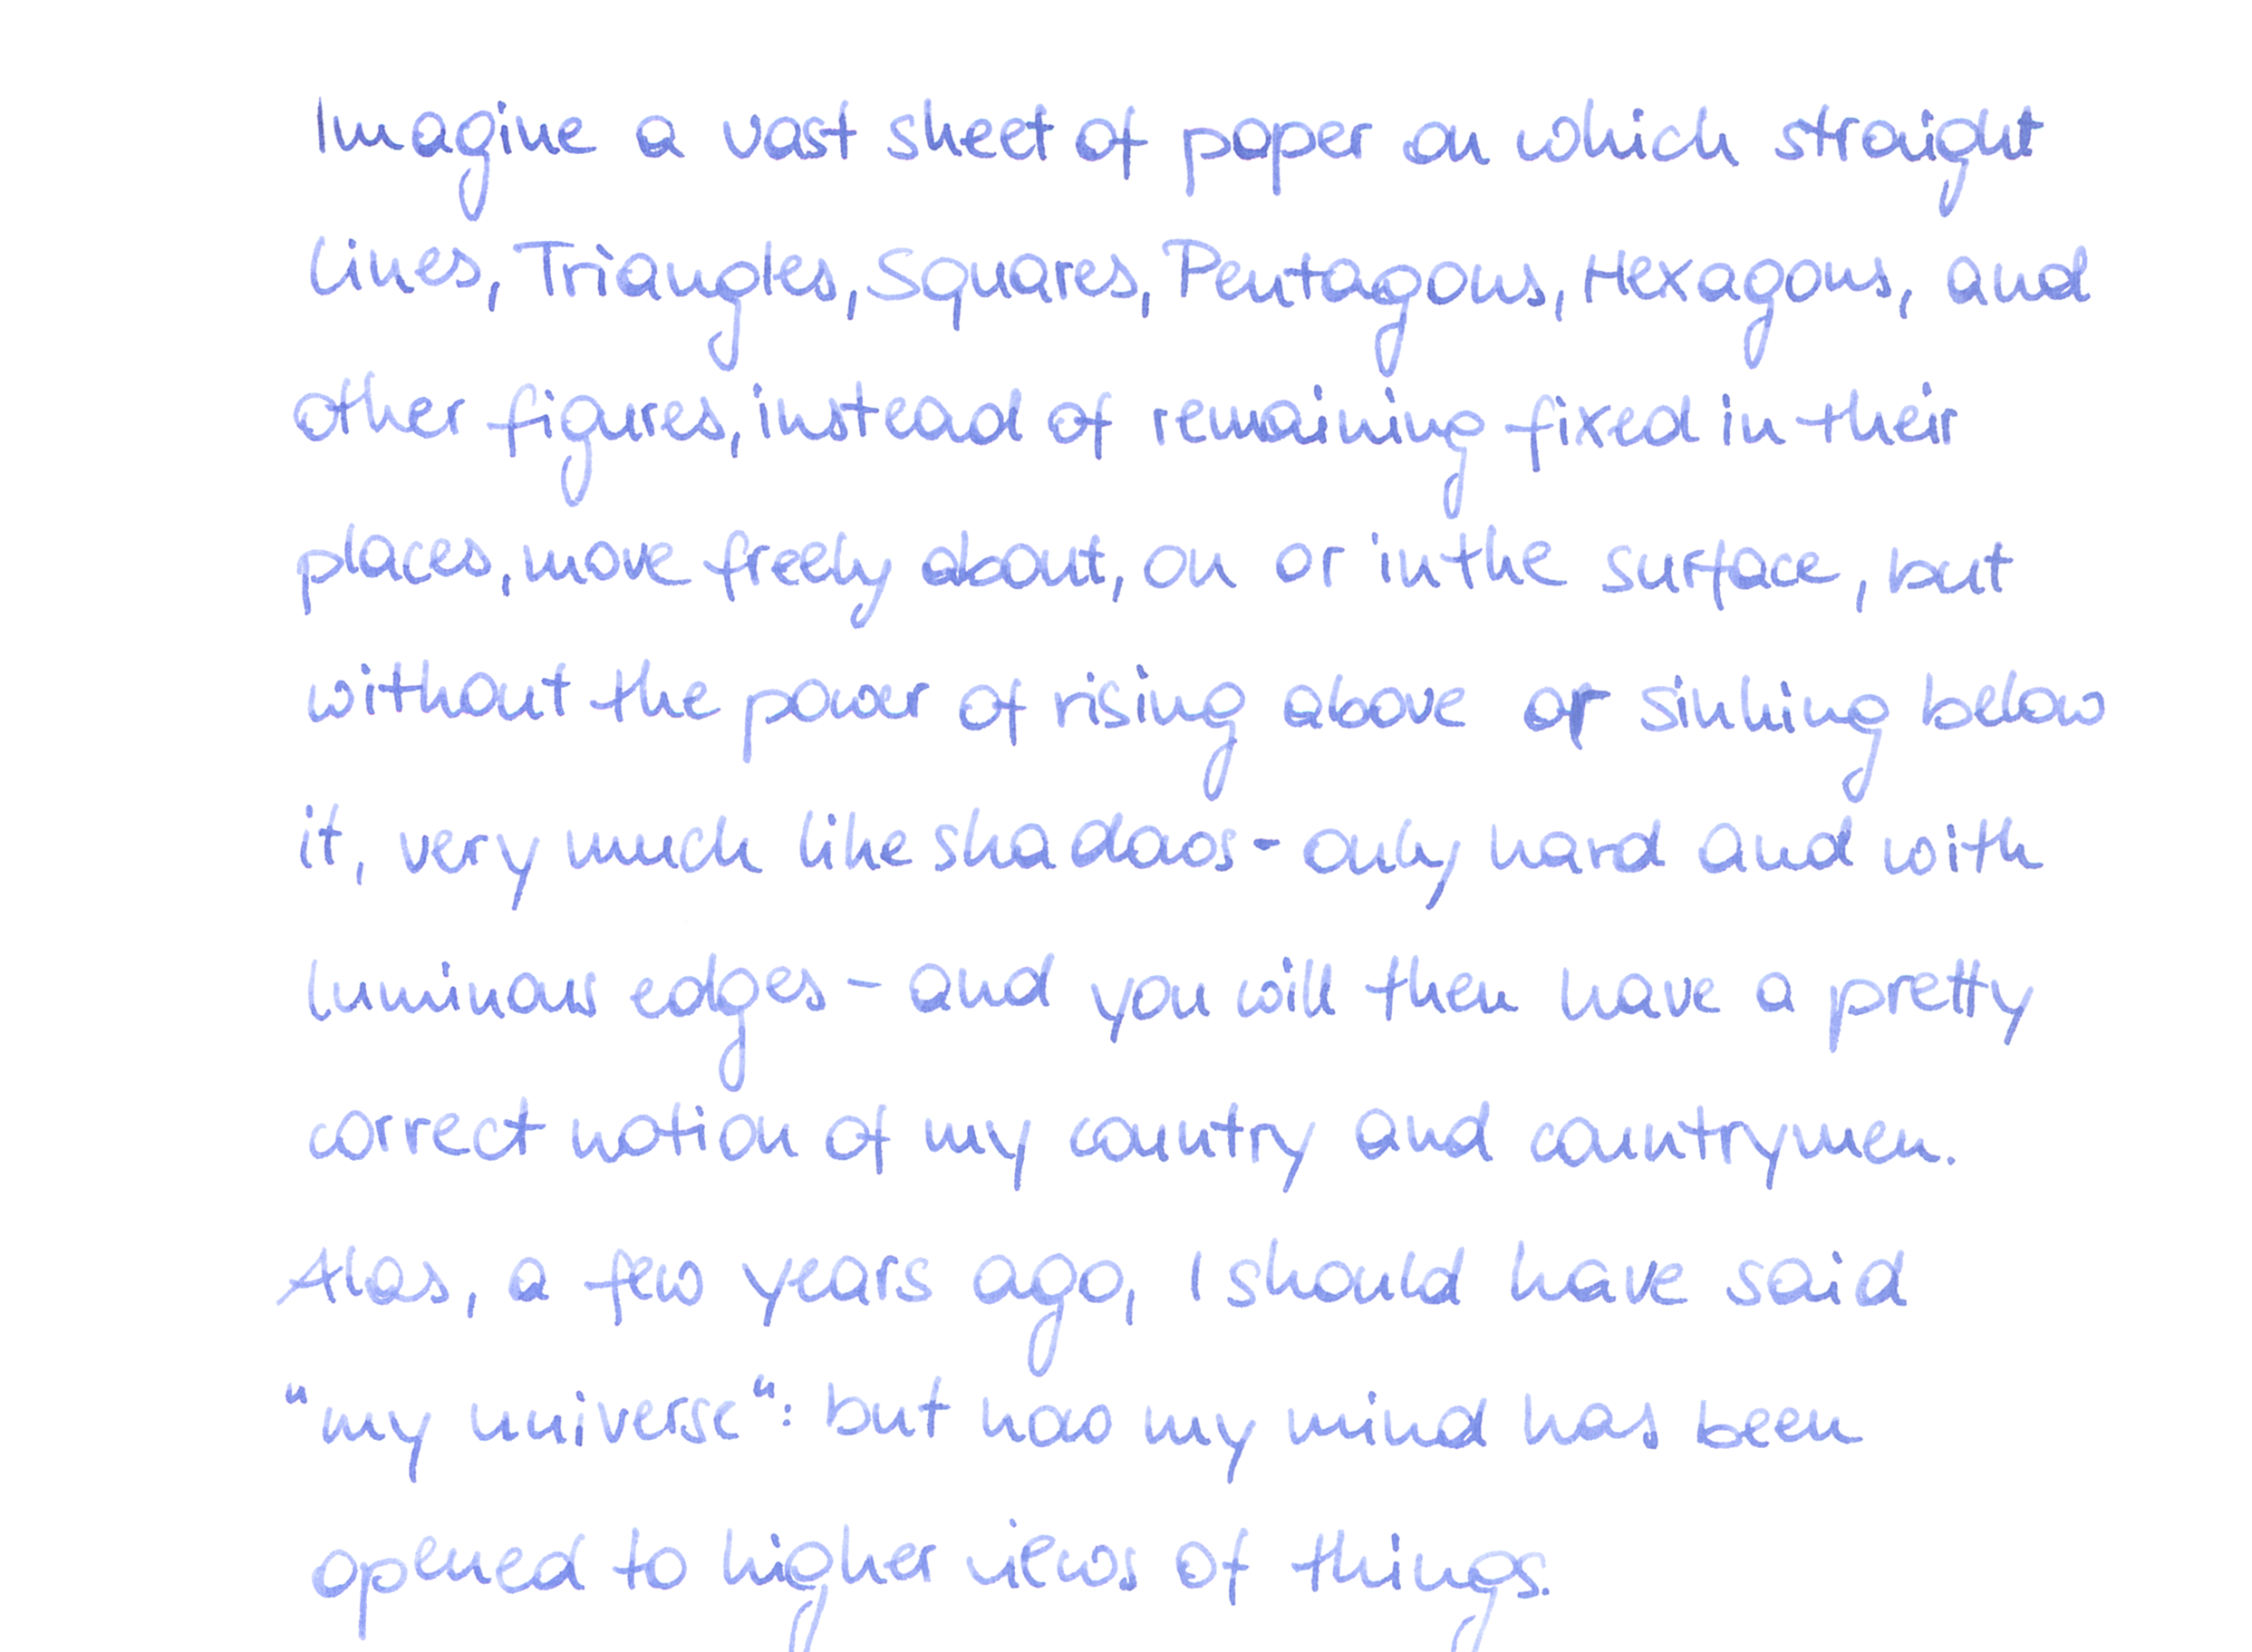 Imagine a vast sheet of paper on which straight
lines, Triangles, Squares, Pentagons, Hexagons, and
other figures, instead of remaining fixed in their
places, move freely about, on or in the surface, but
without the power of rising above or sinking below
it, very much like shadows - only hard and with
luminous edges - and you will then have a pretty
correct notion of my country and countrymen.
Alas, a few years ago, I should have said
"my universe": but now my mind has been
opened to higher views of things.